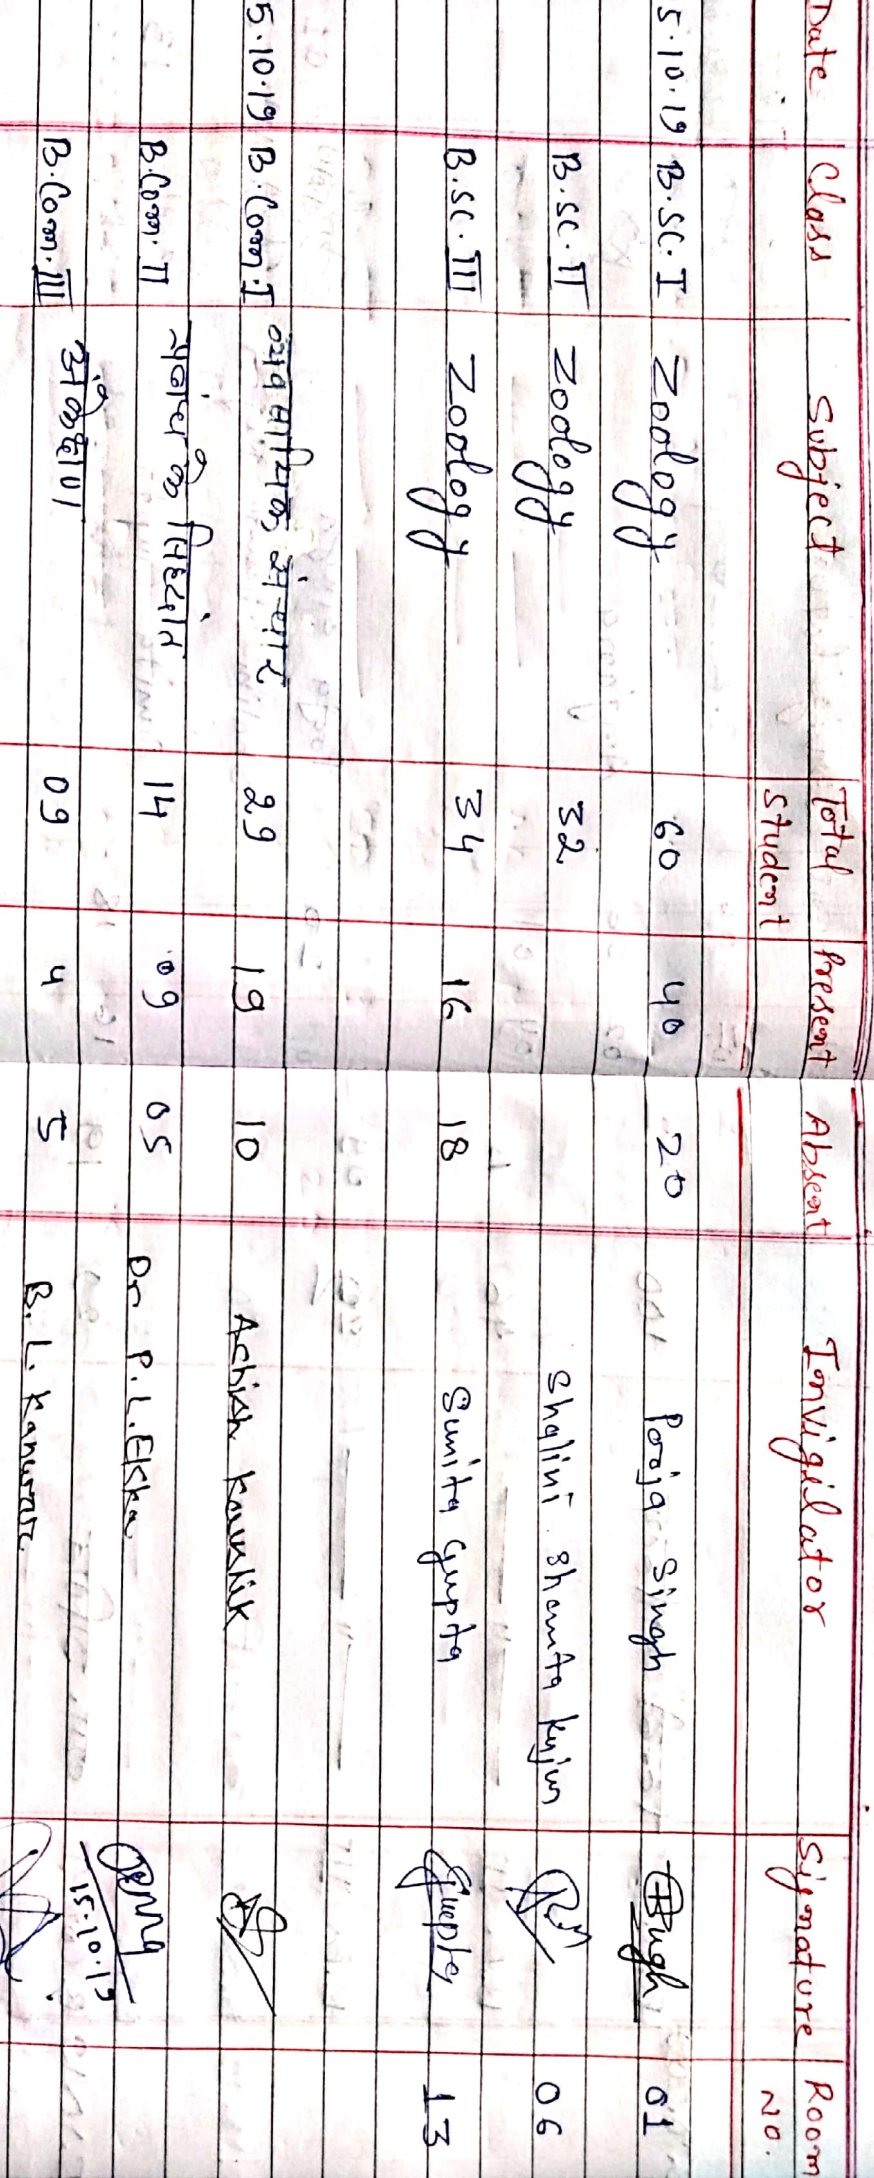 Date Class Subject Total Student Present Absent Invigilator Signature Room No.
5.10.19 B.Sc. I Zoology 60 40 20 Pooja Singh 01
B.Sc. II Zoology 32 Shalini Shamita Kujur 06
B.Sc. III Zoology 34 16 18 Sunita Gupta Gupta 13
5.10.19 B.Com I व्यवसायिक संचार 29 19 10 Kaushik
B.Com. II प्रबंध के सिद्धांत 14 09 05 Dr. P. L. Ekka 15.10.19
B.Com. III अंकेक्षण 09 4 5 B. L.